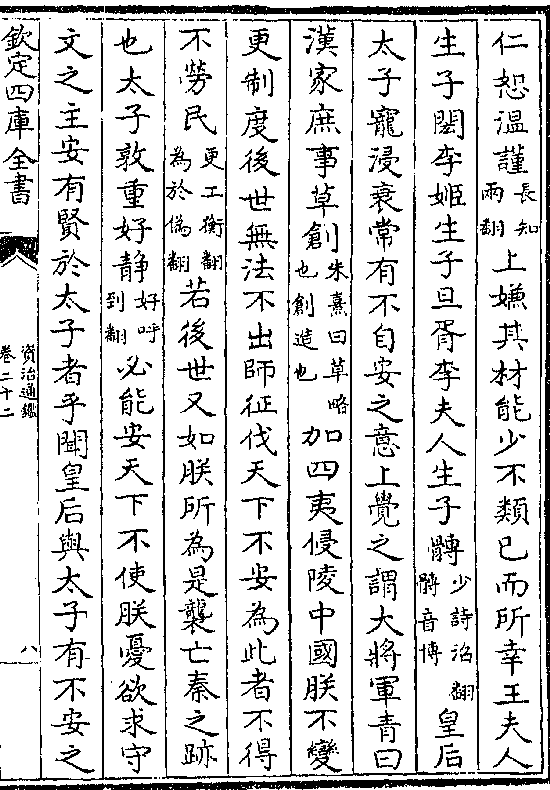 仁恕溫謹長知兩翻上嫌其材能少不類已而所幸王夫人
生子閎李姬生子旦胥李夫人生子髆少詩沼翻髆音博皇后
太子寵浸衰常有不自安之意上覺之謂大將軍青曰
漢家庶事草創朱熹曰草略也創造也加四夷侵陵中國朕不變
更制度後世無法不出師征伐天下不安為此者不得
不勞民更工衡翻為於偽翻若後世又如朕所為是襲亡秦之跡
也太子敦重好静好呼到翻必能安天下不使朕憂欲求守
文之主安有賢於太子者乎聞皇后與太子有不安之
欽定四庫全書
資治通鑑
卷二十二
八